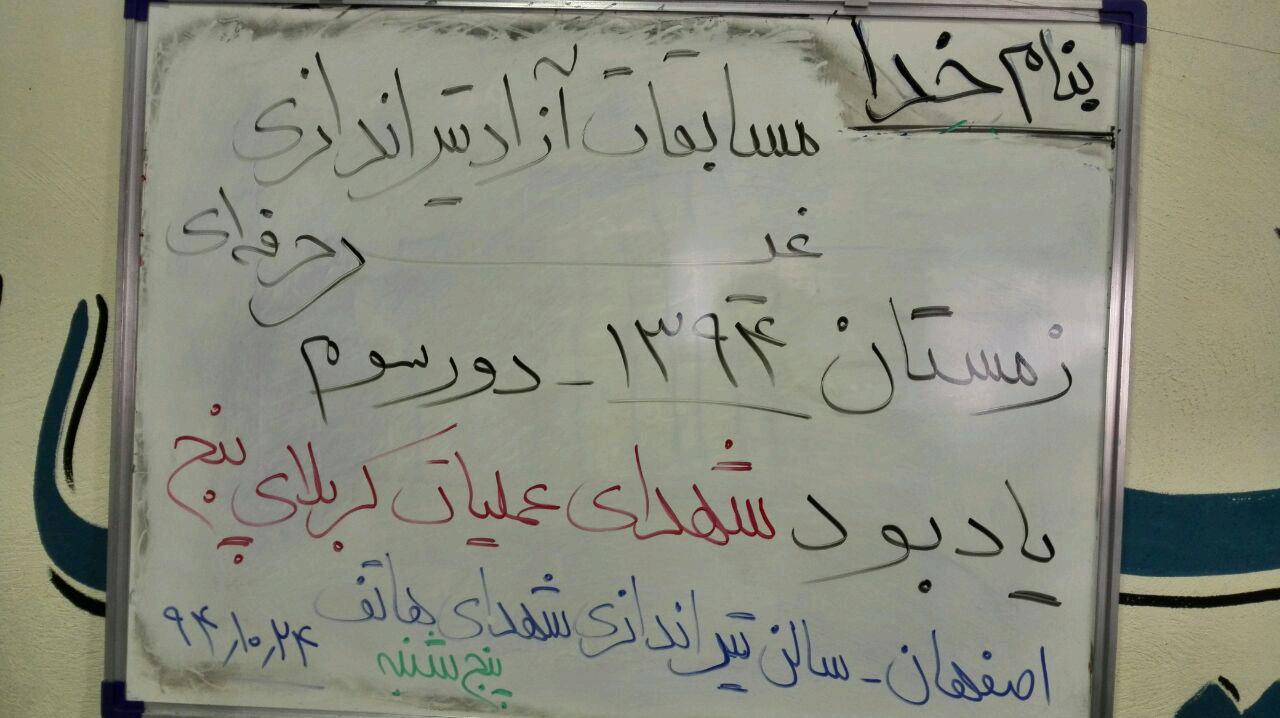 بنام خدا
مسابقات آزاد تیراندازی
غیر حرفه‌ای
زمستان ۱۳۹۴ - دور سوم
یادبود شهدای عملیات کربلای پنج
اصفهان - سالن تیراندازی شهدای هاتف ۹۴،۱۰،۲۴
پنج شنبه